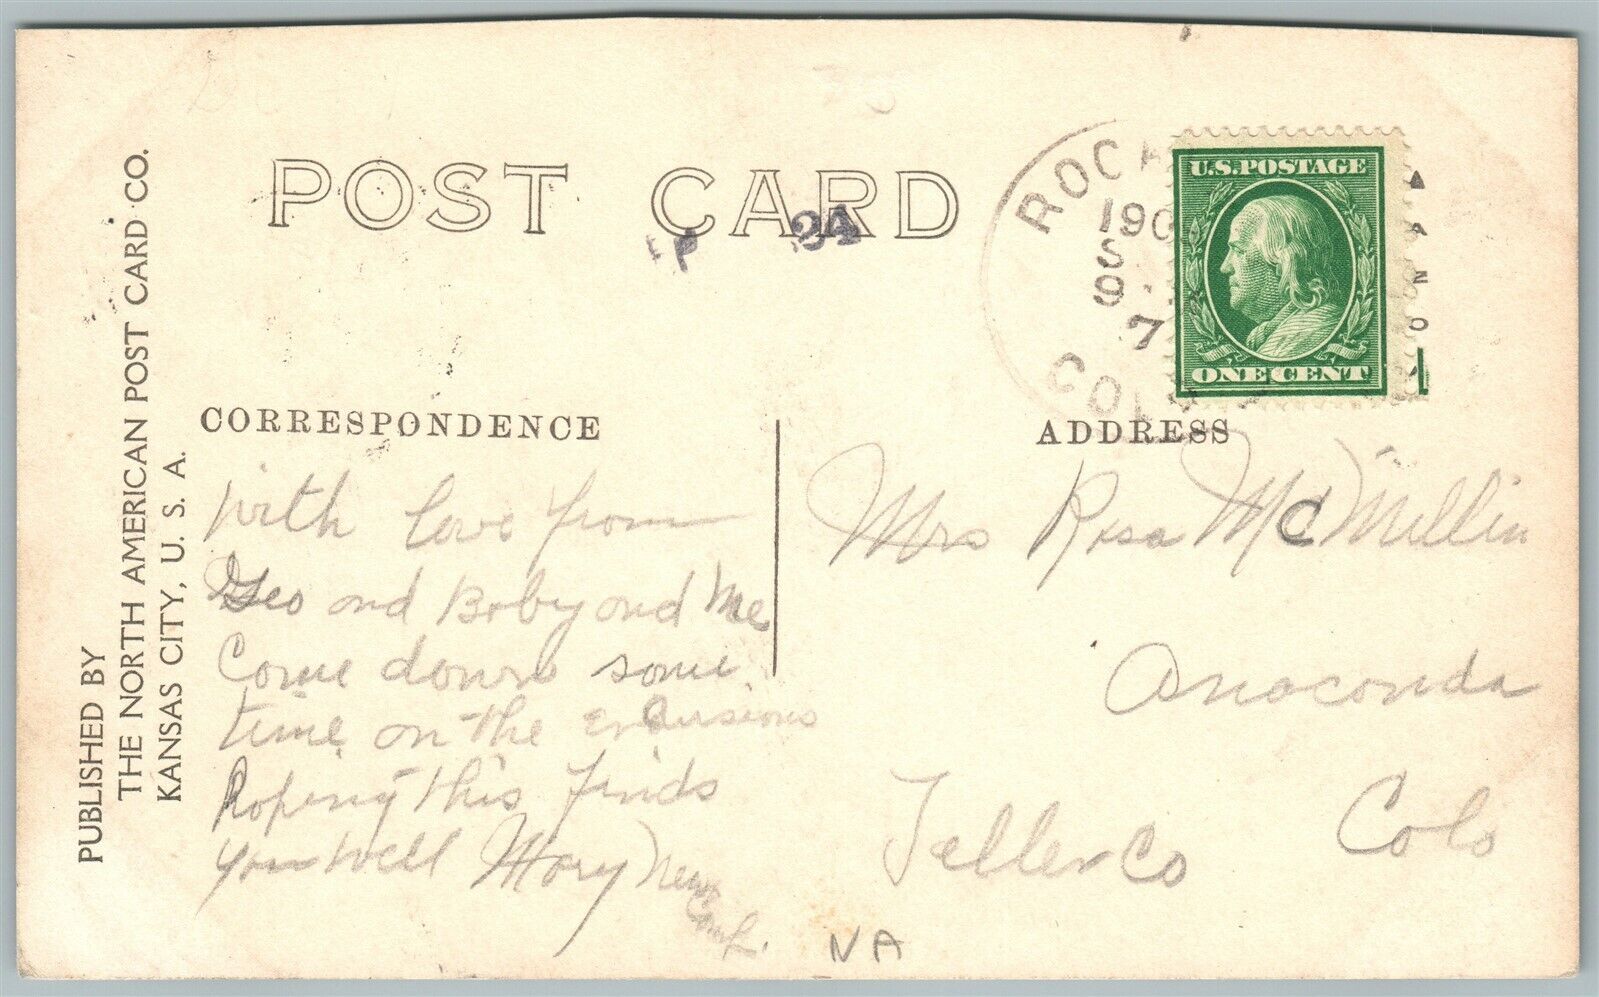 PUBLISHED BY
THE NORTH AMERICAN POST CARD CO.
KANSAS CITY, U. S. A.
POST CARD
24
ROCK
190
S
9
7
COLO
U.S. POSTAGE
ONE CENT
CORRESPONDENCE
with love from
Geo and Boby and Me
Come down some
time on the Excursions
Hoping this finds
you well Mary New
Comb.
ADDRESS
Mrs Rosa McMillin
Anaconda
Teller Co Colo
NA